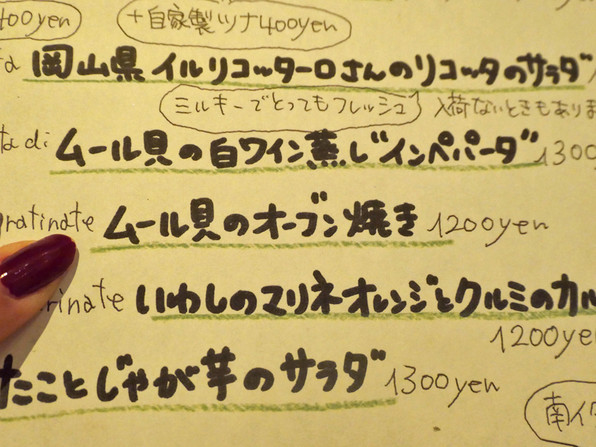 400yen +自家製ツナ400yen
岡山県イルリコッターロさんのリコッタのサラダ
ミルキーでとってもフレッシュ 入荷ないときもありま
di ムール貝の白ワイン蒸し"インペパーダ" 1300
gratinate ムール貝のオーブン焼き 1200yen
rinate いわしのマリネオレンジとクルミのカル
1200ye
たことじゃが芋のサラダ 1300yen
南イ